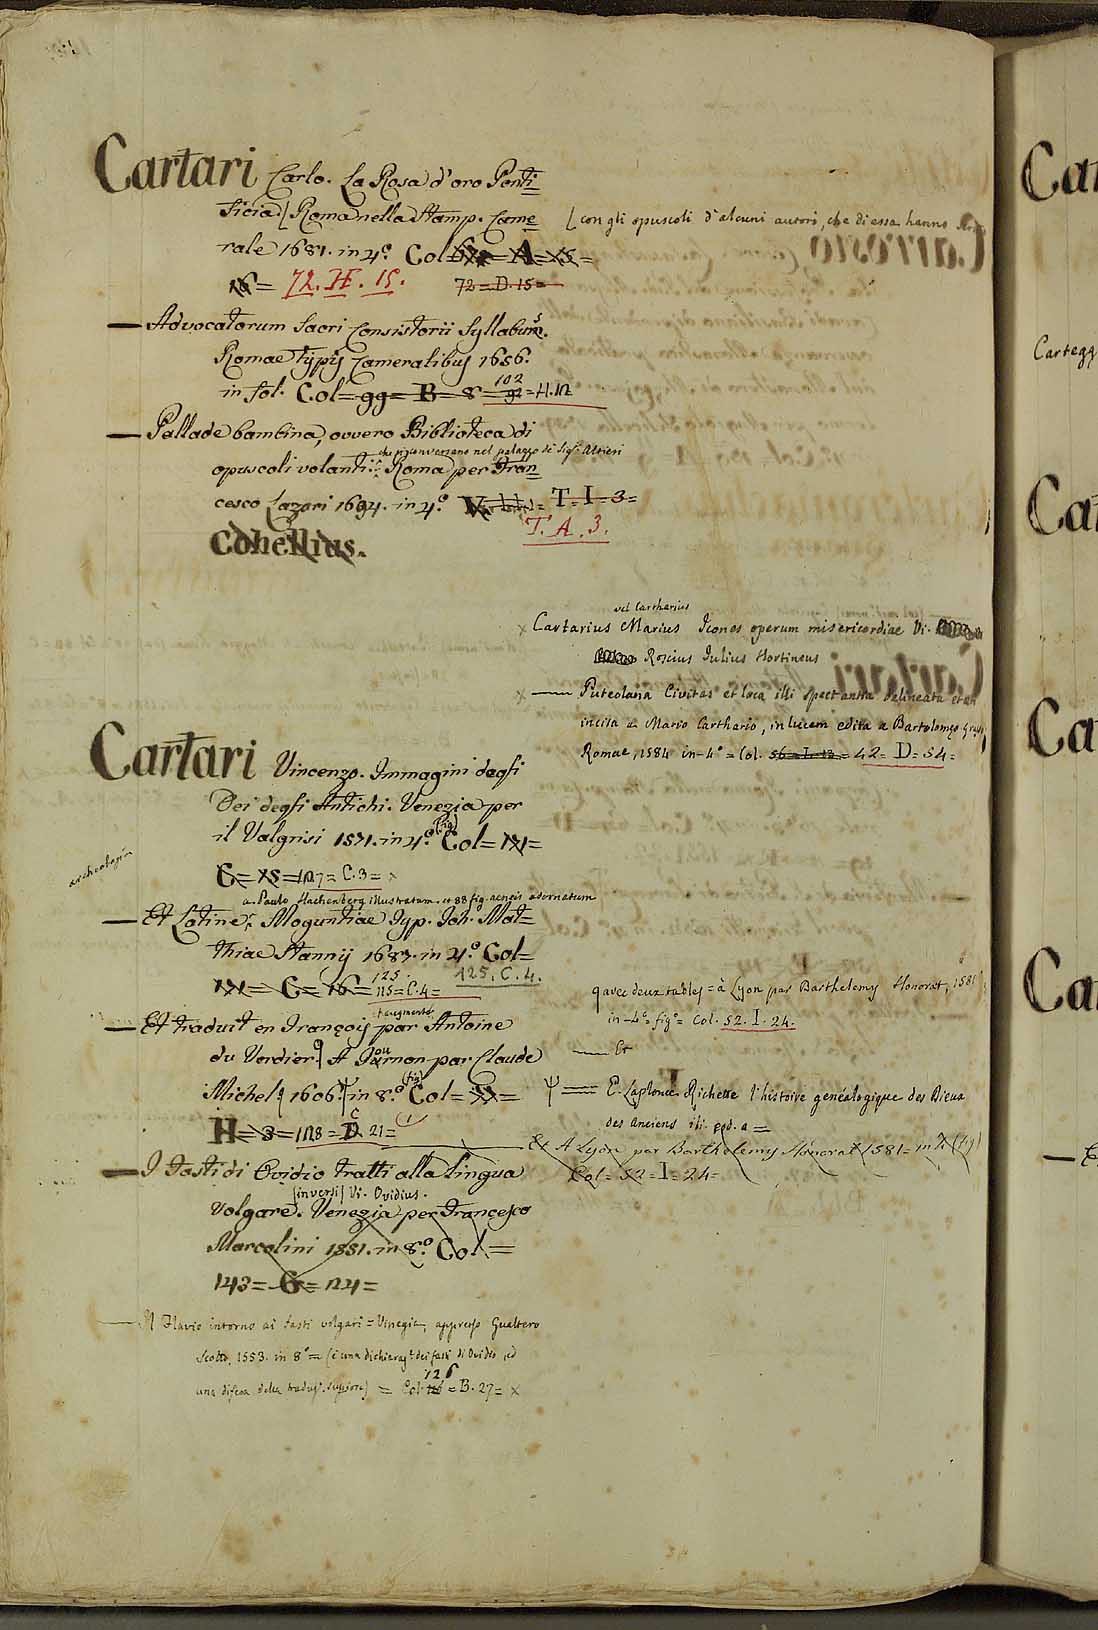 Cartari Carlo. La Rosa d'oro Ponti=
ficia [ Roma nella Stamp. Came= [ con gli opuscoli d'alcuni autori, che di essa hanno
rale 1681. in 4.º Col = A = 15 =
16 = 72. H. 15. 72 = D. 15 =
— Advocatorum Sacri Consistorii Syllabus.
Romae typis Cameralibus 1656.
in fol. Col = 99 = B = 8 = 102 92 = H. 12
— Pallade bambina, ovvero Biblioteca di
che si conservano nel palazzo de' Sigr. Altieri
opuscoli volanti Roma per Fran=
cesco Lazari 1694. in 4.º = T = I = 3 =
T. A. 3.
Cohellius.
vel Cartharius
x Cartarius Marius Icones operum misericordiae Vi.
Roscius Julius Hortinus
x — Puteolana Civitas et loca illi spectantia delineata et
incisa a Mario Carthario, in lucem edita a Bartolomeo
Romae, 1584 in-4º = Col. 56 = I. 12. = 42 = D = 54 =
Cartari Vincenzo. Immagini degli
Dei degli Antichi. Venezia per
il Valgrisi 1571. in 4.º (fig) Col = 121 =
archeologia
G = 15 = 127 = C. 3 = x
a Paulo Hachenberg illustratam et 88 fig. aeneis adornatum
— Et Latine, Moguntiae Typ. Joh. Mat=
thiae Stannij 1687. in 4.º Col =
121 = C = 16 = 125. 115 = C. 4 = 125. C. 4.
— Et traduit en François par Antoine
et augmentés
du Verdier A Tournon par Claude
Michel 1606. Ψ in 8.º (fig) Col = =
H = 3 = 128 = D C 21 =
q avec deux tables = à Lyon par Barthelemy Honorat, 1581
in-4º = figº = Col. 52. I. 24.
— Et
Ψ — E. Laplonce Richette l'histoire genéalogique des Dieux
des anciens
Et A Lyon par Barthelemy Honorat 1581 = in 4 (fig)
Col = 52 = I = 24 =
— I Fasti di Ovidio tratti alla lingua
[in versi] Vi. Ovidius.
Volgare. Venezia per Francesco
Marcolini 1551. in 8.º Col =
143 = G = 124 =
— Il Flavio intorno ai fasti volgari = Vinegia, appresso Gualtero
Scotto, 1553. in 8º = (è una dichiaraz.e dei fasti di Ovidio, ed
una difesa della traduz.e superiore) = Col. 126 = B. 27 = x